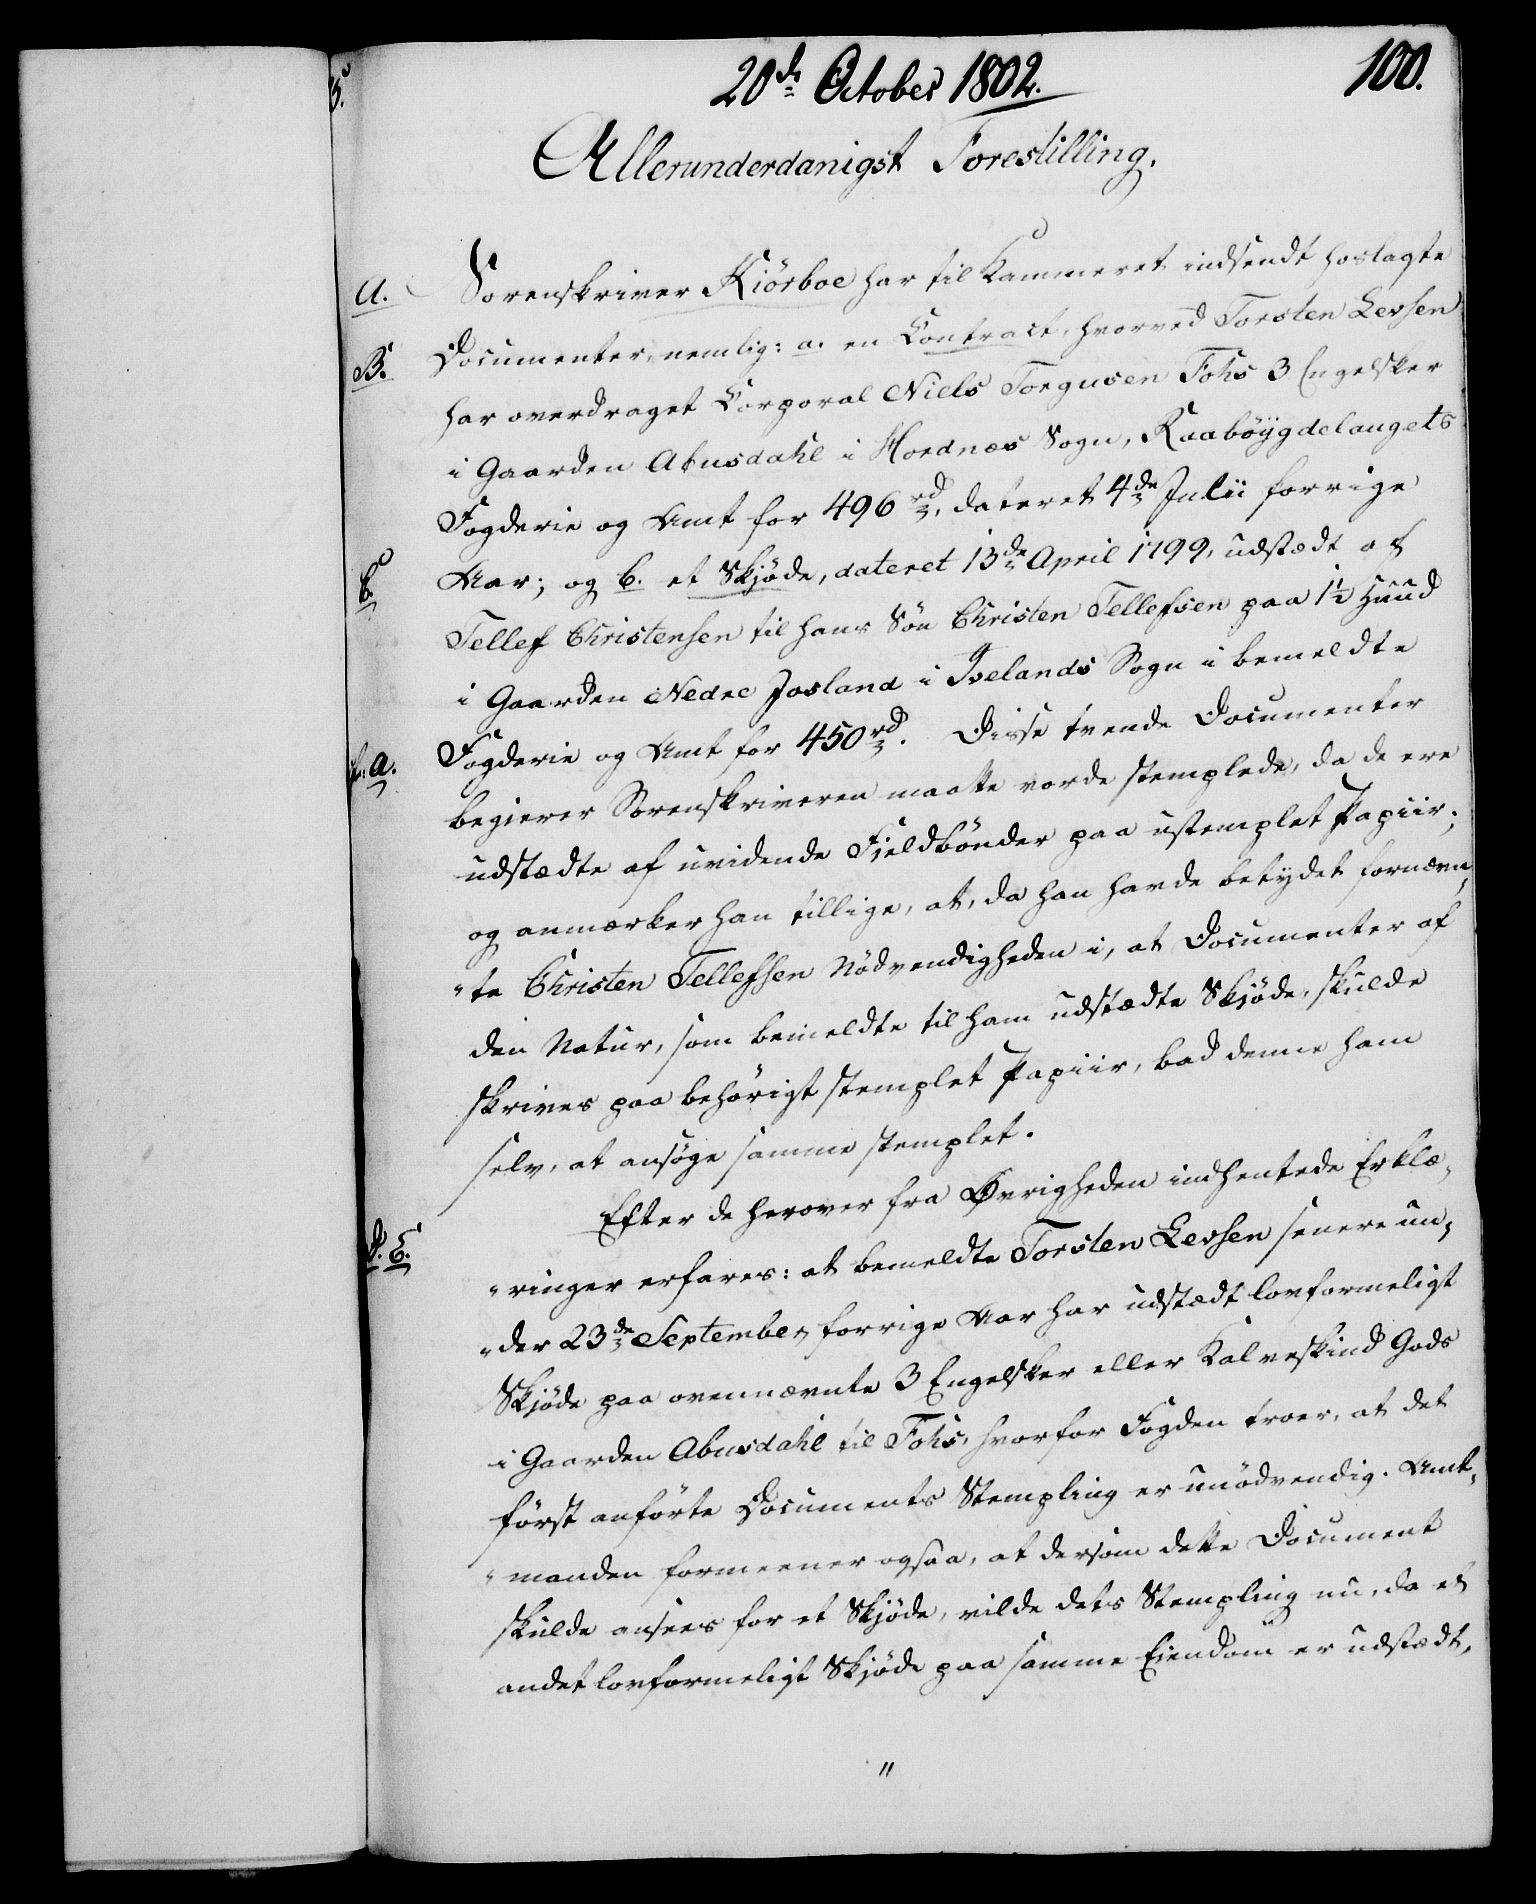 20de October 1802.
100.
Allerunderdanigst Forestilling.
A. Sorenskriver Kiörboe har til Kammeret indsendt hoslagte
B. Documenter, nemlig: a. en Contract, hvorved Torsten Levsen
har overdraget Corporal Niels Torgusen Fohs 3 Engelsker
i Gaarden Abusdahl i Hordnes Sogn, Raabøygdelaugets
Fogderie og Amt for 496 rd, dateret 4de Julii forrige
C. Aar; og b. et Skjøde, dateret 13de April 1799, udstædt af
Tellef Christensen til hans Søn Christen Tellefsen paa 1½ Huud
i Gaarden Nedre Josland i Ivelands Sogn i bemeldte
a. Fogderie og Amt for 450 rd. Disse tvende Documenter
begierer Sorenskriveren maatte vorde stemplede, da de ere
udstædte af uvidende Fieldbønder paa ustemplet Papiir;
og anmærker han tillige, at, da han havde betydet fornævn-
"te Christen Tellefsen Nødvendigheden i, at Documenter af
den Natur, som bemeldte til ham udstædte Skjøde, skulde
skrives paa behørigt stemplet Papiir, bad denne ham
selv, at ansøge samme stemplet.
Efter de herover fra Øvrigheden indhentede Erklæ-
D. E. "ringer erfares: at bemeldte Torsten Levsen senere un-
"der 23de September forrige Aar har udstædt lovformeligt
Skjøde paa ovennævnte 3 Engelsker eller Kalveskind Gods
i Gaarden Abusdahl til Fohs, hvorfor Fogden troer, at det
først anførte Documents Stempling er unødvendig. Amt-
"manden formeener ogsaa, at dersom dette Document
skulde ansees for et Skjøde, vilde dets Stempling nu, da et
andet lovformeligt Skjøde paa samme Eiendom er udstædt,
"